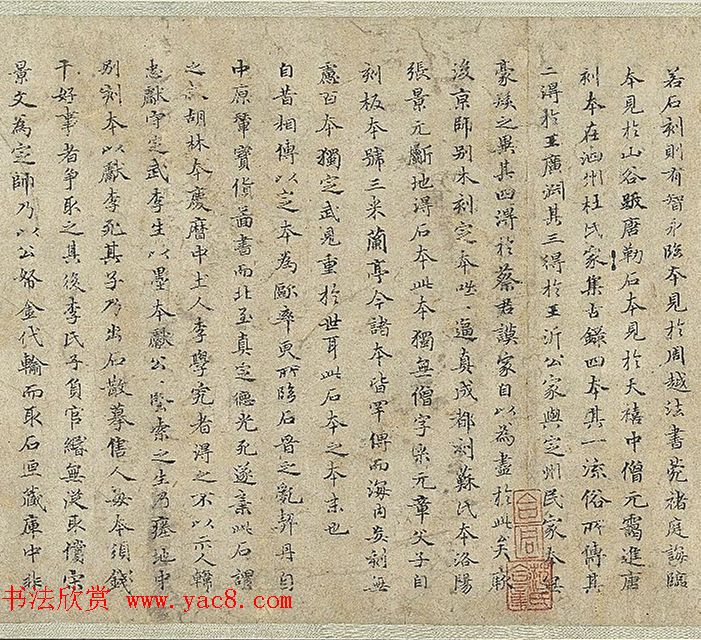 若石刻則有智永臨本見於周越法書苑褚庭誨臨
本見於山谷跋唐勒石本見於天禧中僧元靄進唐
刻本在泗州杜氏家集古錄四本其一流俗所傳其
二得於王廣淵其三得於王沂公家與定州民家本無
豪髮之異其四得於蔡君謨家自以為盡於此矣厥
後京師別木刻定本咄〻逼真成都刻蘇氏本洛陽
張景元斸地得石本此本獨無僧字米元章父子自
刻板本號三米蘭亭今諸本皆罕傳而海內爭刻無
慮百本獨定武見重於世耳此石本之本末也
自昔相傳以定本為歐率更所臨石晉之亂契丹自
中原輦寶貨圖書而北至真定德光死遂棄此石謂
之胡林本慶曆中土人李學究者得之不以示人韓
忠獻守定武李生以墨本獻公〻堅索之生乃瘞地中
別刻本以獻李死其子乃出石散摹售人每本須錢
千好事者爭取之其後李氏子負官緡無從取償宋
景文為定帥乃以公帑金代輸而取石匣藏庫中非
书法欣赏 www.yac8.com